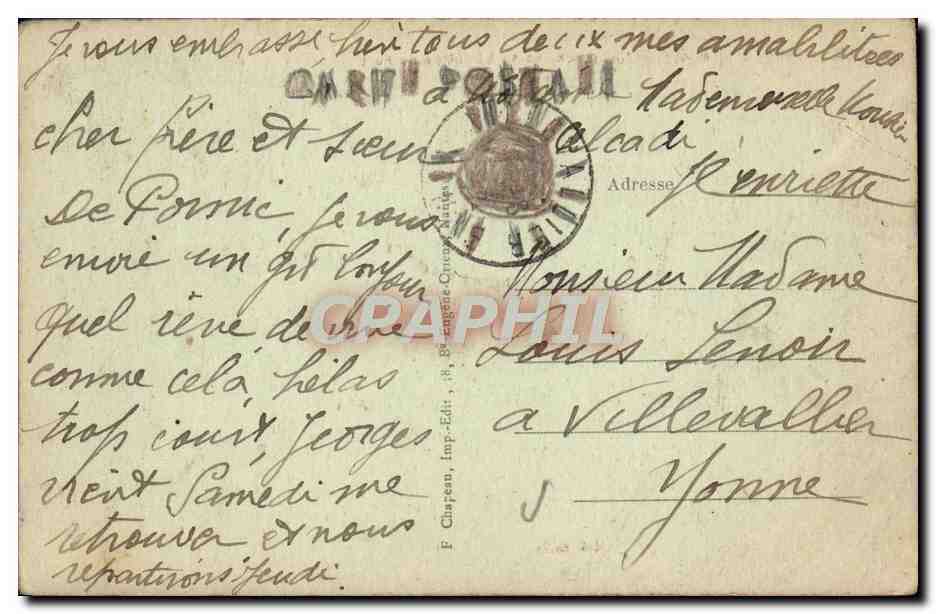 Je vous embrasse bien tous deux mes amablitées
CARTE POSTALE
à Mademoiselle
cher frère et sœur
Alcadi
Adresse Henriette
De Pornic, je vous
envoie un gd bonjour
quel rêve de vivre
comme cela, hélas
trop court, Georges
vient Samedi me
retrouver et nous
repartirons Jeudi.
Monsieur Madame
Louis Lenoir
a Villevallier
Yonne
F Chapeau, Imp.-Edit., 18, Bd Eugène-Orieux, Nantes
CPAPHIL